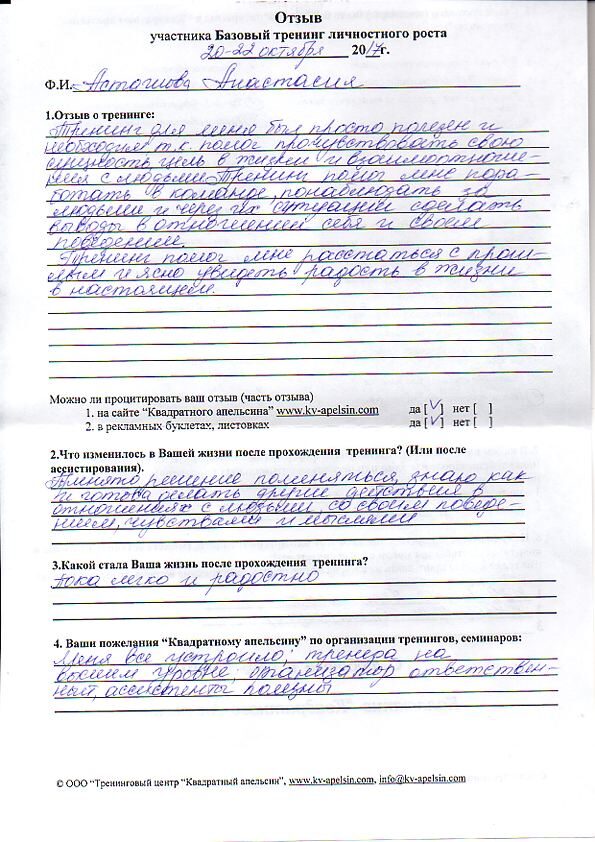 Отзыв
участника Базовый тренинг личностного роста
20-22 октября 2017г.
Ф.И. Асташова Анастасия
1.Отзыв о тренинге:
Тренинг для меня был просто полезен и
необходим т.к. помог прочувствовать свою
сущность, цель в жизни и взаимоотноше-
ния с людьми. Тренинг помог мне пора-
ботать в команде, понаблюдать за
людьми и через их ситуации сделать
выводы в отношении себя и своем
поведении.
Тренинг помог мне расстаться с прош-
лым и ясно увидеть радость в жизни
в настоящем.
Можно ли процитировать ваш отзыв (часть отзыва)
1. на сайте “Квадратного апельсина” www.kv-apelsin.com да [V] нет [ ]
2. в рекламных буклетах, листовках да [V] нет [ ]
2.Что изменилось в Вашей жизни после прохождения тренинга? (Или после
ассистирования).
Принято решение поменяться, знаю как
и готова делать другие действия в
отношениях с людьми, со своим поведе-
нием, чувствами и мыслями
3.Какой стала Ваша жизнь после прохождения тренинга?
Пока легко и радостно
4. Ваши пожелания “Квадратному апельсину” по организации тренингов, семинаров:
Меня все устроило; тренера на
высшем уровне; организатор ответствен-
ный, ассистенты полезны
© ООО “Тренинговый центр “Квадратный апельсин”, www.kv-apelsin.com, info@kv-apelsin.com